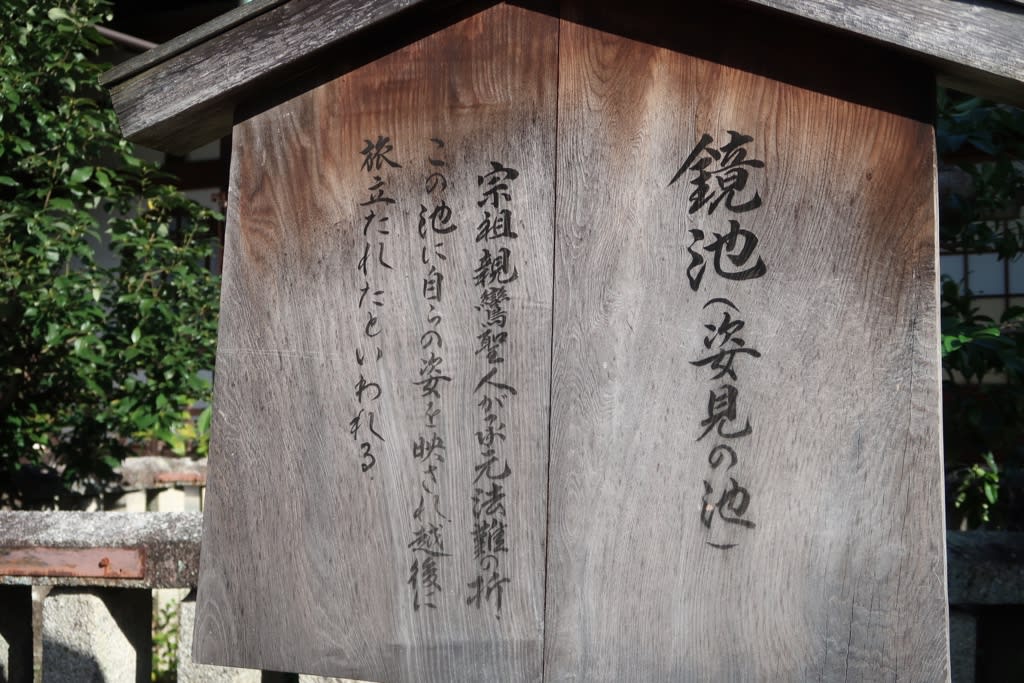 鏡池（姿見の池）
宗祖親鸞聖人が承元法難の折、
この池に自らの姿を映され越後に
旅立たれたといわれる。